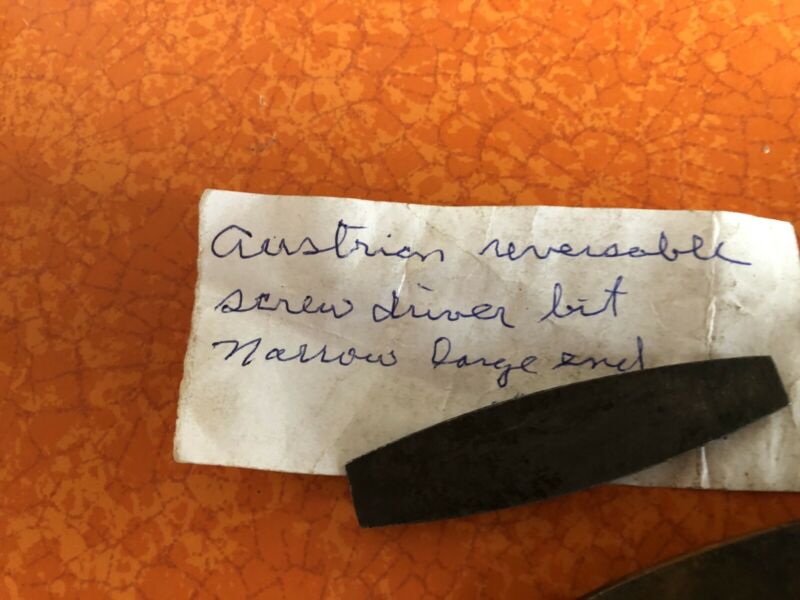 Austrian reversable
screw driver bit
Narrow Large end